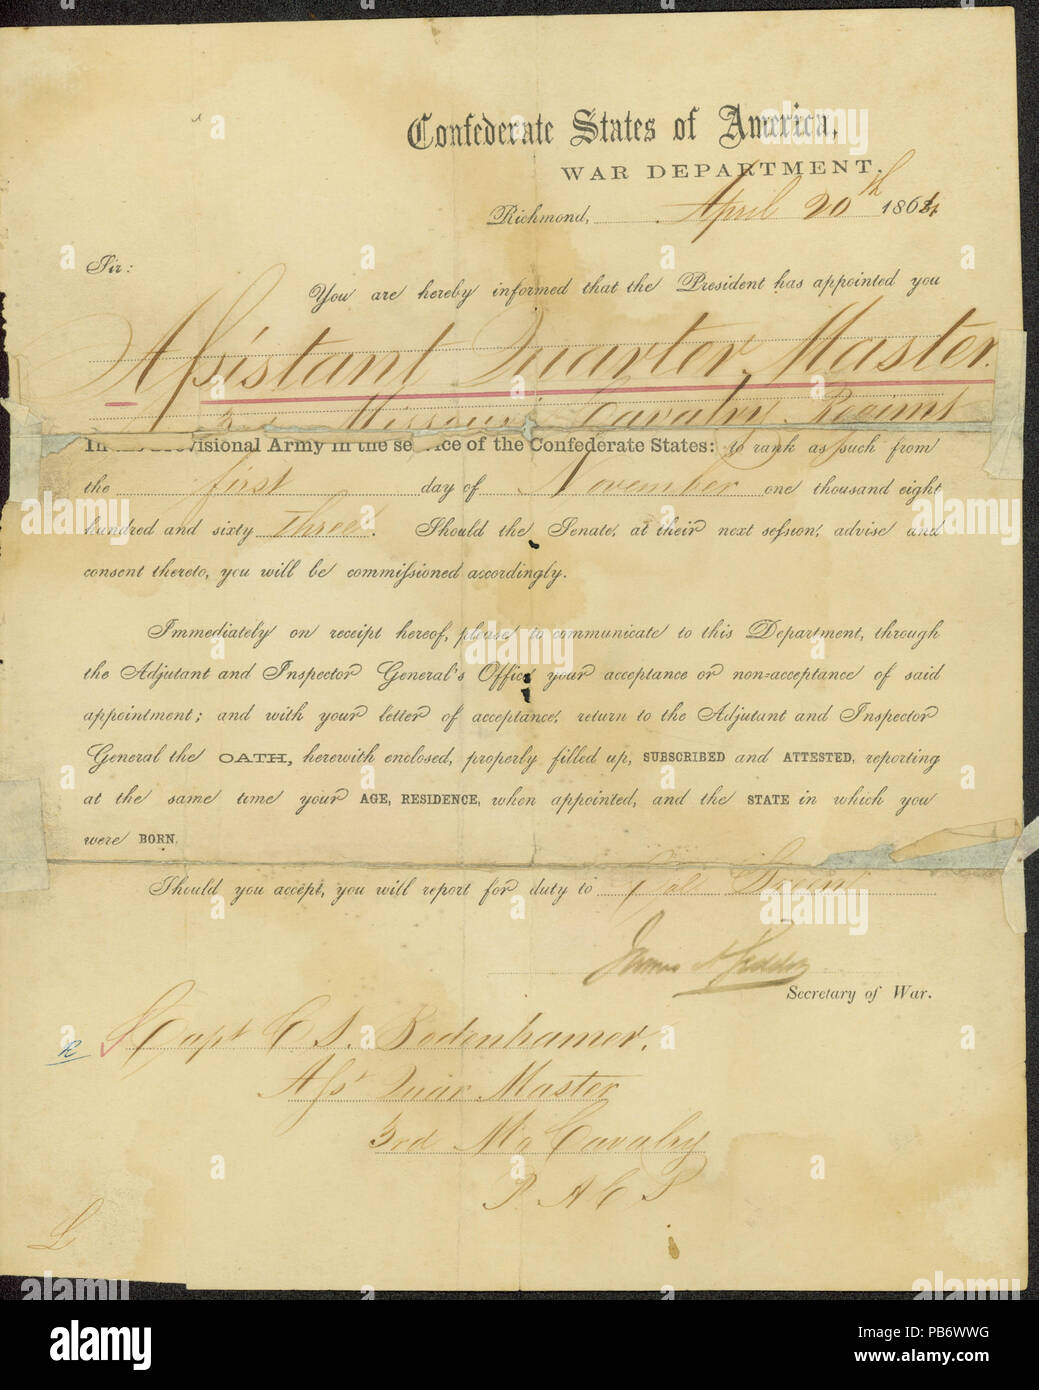 Confederate States of America,
WAR DEPARTMENT,
Richmond, April 20th 1864
Sir:
You are hereby informed that the President has appointed you
Assistant Quarter Master.
3rd Missouri Cavalry Regiment
In the Provisional Army in the service of the Confederate States: to rank as such from
the first day of November one thousand eight
hundred and sixty three. Should the Senate, at their next session, advise and
consent thereto, you will be commissioned accordingly.
Immediately on receipt hereof, please to communicate to this Department, through
the Adjutant and Inspector General's Office, your acceptance or non=acceptance of said
appointment; and with your letter of acceptance, return to the Adjutant and Inspector
General the OATH, herewith enclosed, properly filled up, SUBSCRIBED and ATTESTED, reporting
at the same time your AGE, RESIDENCE, when appointed, and the STATE in which you
were BORN.
Should you accept, you will report for duty to Col Greene
James A Seddon
Secretary of War.
Capt C S. Bodenhamer.
Asst Quar Master
3rd Mo Cavalry
P A C S
L
alamy
Image ID: PB6WWG
www.alamy.com